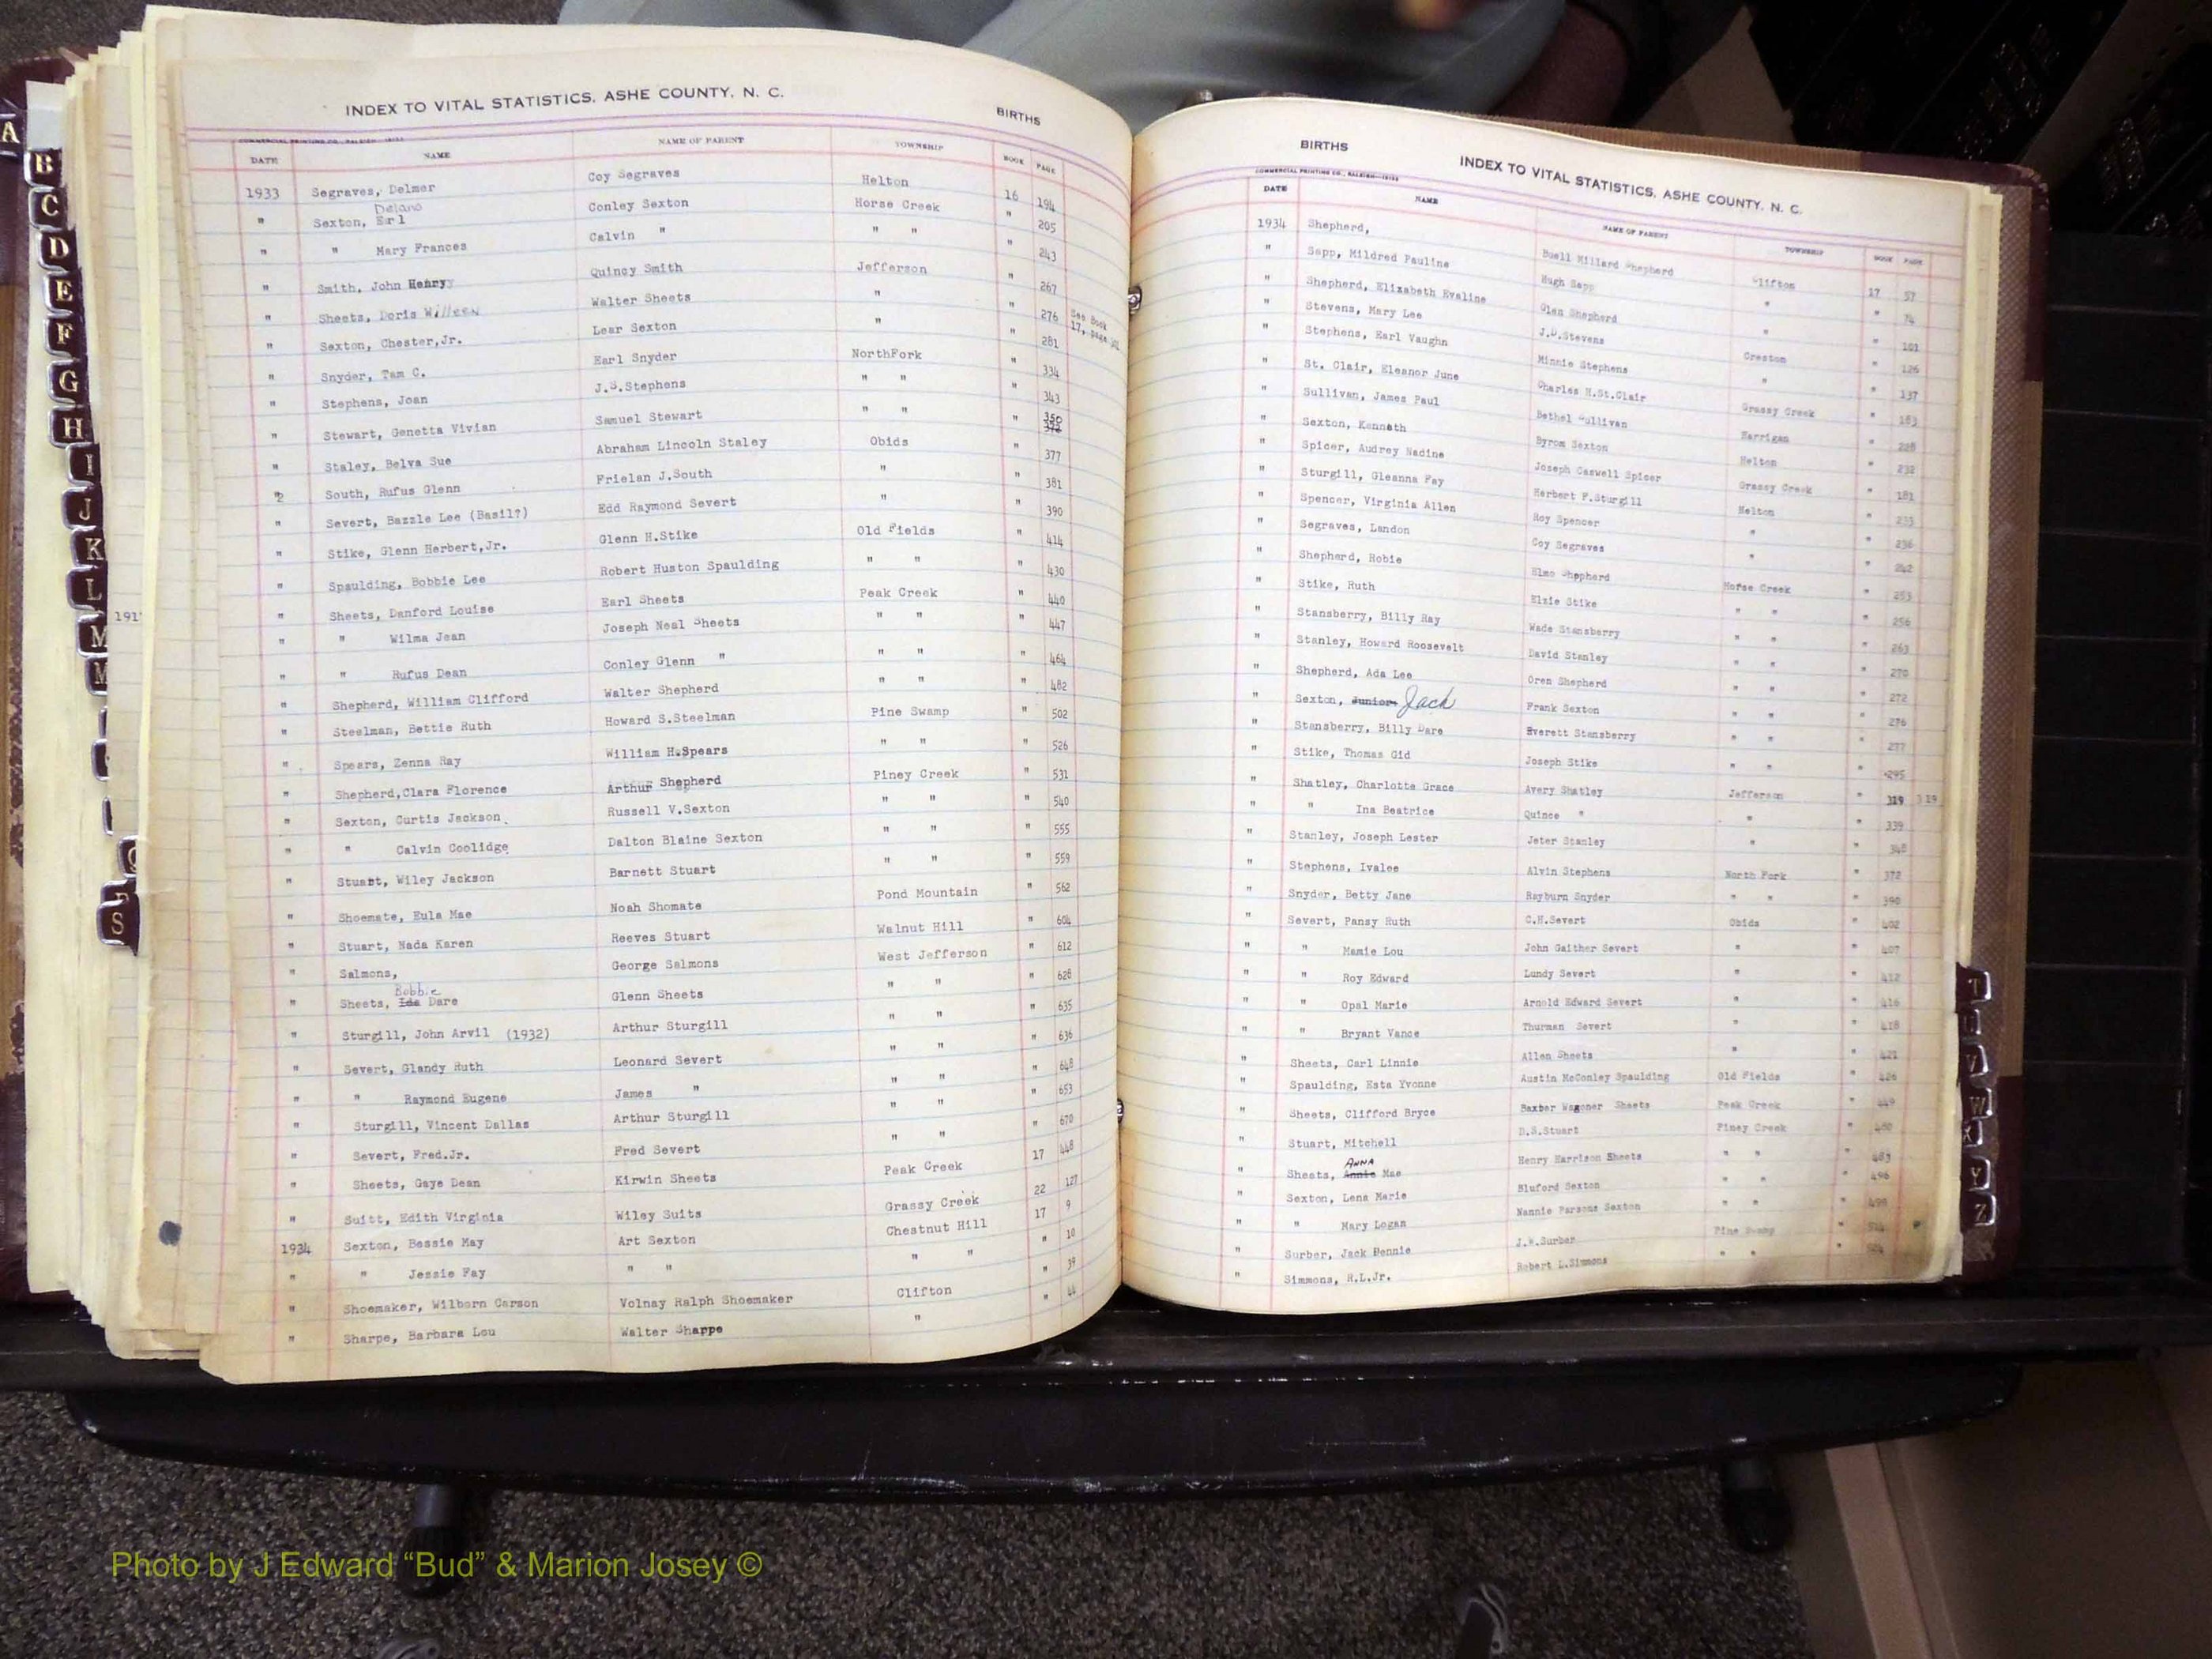 INDEX TO VITAL STATISTICS, ASHE COUNTY, N. C. BIRTHS
COMMERCIAL PRINTING CO., RALEIGH
DATE NAME NAME OF PARENT TOWNSHIP BOOK PAGE
1933 Segraves, Delmer Coy Segraves Helton 16 194
" Sexton, Earl Delano Conley Sexton Horse Creek " 205
" " Mary Frances Calvin " " " " 243
" Smith, John Henry Quincy Smith Jefferson " 267
" Sheets, Doris Willeen Walter Sheets " " 276 See Book 17, page
" Sexton, Chester,Jr. Lear Sexton " " 281
" Snyder, Tam C. Earl Snyder NorthFork " 334
" Stephens, Joan J.S.Stephens " " " 343
" Stewart, Genetta Vivian Samuel Stewart " " " 350
" Staley, Belva Sue Abraham Lincoln Staley Obids " 377
"2 South, Rufus Glenn Frielan J.South " " 381
" Severt, Bazzle Lee (Basil?) Edd Raymond Severt " " 390
" Stike, Glenn Herbert,Jr. Glenn H.Stike Old Fields " 414
" Spaulding, Bobbie Lee Robert Huston Spaulding " " " 430
" Sheets, Danford Louise Earl Sheets Peak Creek " 440
" " Wilma Jean Joseph Neal Sheets " " " 447
" " Rufus Dean Conley Glenn " " " " 464
" Shepherd, William Clifford Walter Shepherd " " " 482
" Steelman, Bettie Ruth Howard S.Steelman Pine Swamp " 502
" Spears, Zenna Ray William H.Spears " " " 526
" Shepherd,Clara Florence Arthur Shepherd Piney Creek " 531
" Sexton, Curtis Jackson. Russell V.Sexton " " " 540
" " Calvin Coolidge Dalton Blaine Sexton " " " 555
" Stuart, Wiley Jackson Barnett Stuart " " " 559
" Shoemate, Eula Mae Noah Shomate Pond Mountain " 562
" Stuart, Nada Karen Reeves Stuart Walnut Hill " 604
" Salmons, George Salmons West Jefferson " 612
" Sheets, Ida Bobbie Dare Glenn Sheets " " " 628
" Sturgill, John Arvil (1932) Arthur Sturgill " " " 635
" Severt, Glandy Ruth Leonard Severt " " " 636
" " Raymond Eugene James " " " " 648
" Sturgill, Vincent Dallas Arthur Sturgill " " " 653
" Severt, Fred.Jr. Fred Severt " " " 670
" Sheets, Gaye Dean Kirwin Sheets Peak Creek 17 448
" Suitt, Edith Virginia Wiley Suits Grassy Creek 22 127
1934 Sexton, Bessie May Art Sexton Chestnut Hill 17 9
" " Jessie Fay " " " " " 10
" Shoemaker, Wilborn Carson Volnay Ralph Shoemaker Clifton " 39
" Sharpe, Barbara Lou Walter Sharpe " " 44
BIRTHS INDEX TO VITAL STATISTICS, ASHE COUNTY, N. C.
COMMERCIAL PRINTING CO., RALEIGH
DATE NAME NAME OF PARENT TOWNSHIP BOOK PAGE
1934 Shepherd, Buell Millard Shepherd Clifton 17 57
" Sapp, Mildred Pauline Hugh Sapp " " 74
" Shepherd, Elizabeth Evaline Glen Shepherd " " 101
" Stevens, Mary Lee J.D.Stevens Creston " 126
" Stephens, Earl Vaughn Minnie Stephens " " 137
" St. Clair, Eleanor June Charles H.St.Clair Grassy Creek " 183
" Sullivan, James Paul Bethel Sullivan Harrigan " 228
" Sexton, Kenneth Byrom Sexton Helton " 232
" Spicer, Audrey Nadine Joseph Caswell Spicer Grassy Creek " 181
" Sturgill, Gleanna Fay Herbert F.Sturgill Helton " 235
" Spencer, Virginia Allen Roy Spencer " " 236
" Segraves, Landon Coy Segraves " " 242
" Shepherd, Robie Elmo Shepherd Horse Creek " 253
" Stike, Ruth Elzie Stike " " " 256
" Stansberry, Billy Ray Wade Stansberry " " " 263
" Stanley, Howard Roosevelt David Stanley " " " 270
" Shepherd, Ada Lee Oren Shepherd " " " 272
" Sexton, Junior Jack Frank Sexton " " " 276
" Stansberry, Billy Dare Everett Stansberry " " " 277
" Stike, Thomas Gid Joseph Stike " " " 295
" Shatley, Charlotte Grace Avery Shatley Jefferson " 319 319
" " Ina Beatrice Quince " " " 339
" Stanley, Joseph Lester Jeter Stanley " " 348
" Stephens, Ivalee Alvin Stephens North Fork " 372
" Snyder, Betty Jane Rayburn Snyder " " " 390
" Severt, Pansy Ruth C.H.Severt Obids " 402
" " Mamie Lou John Gaither Severt " " 407
" " Roy Edward Lundy Severt " " 412
" " Opal Marie Arnold Edward Severt " " 416
" " Bryant Vance Thurman Severt " " 418
" Sheets, Carl Linnie Allen Sheets " " 421
" Spaulding, Esta Yvonne Austin McConley Spaulding Old Fields " 426
" Sheets, Clifford Bryce Baxter Wagoner Sheets Peak Creek " 449
" Stuart, Mitchell D.S.Stuart Piney Creek " 480
" Sheets, Annie ANNA Mae Henry Harrison Sheets " " " 483
" Sexton, Lena Marie Bluford Sexton " " " 496
" " Mary Logan Nannie Parsons Sexton " " " 499
" Surber, Jack Bennie J.W.Surber Pine Swamp "
" Simmons, R.L.Jr. Robert L.Simmons " " "
A
B
C
D
E
F
G
H
I
J
K
L
M
M
S
191
T
V
W
Y
Z
Photo by J Edward “Bud” & Marion Josey ©